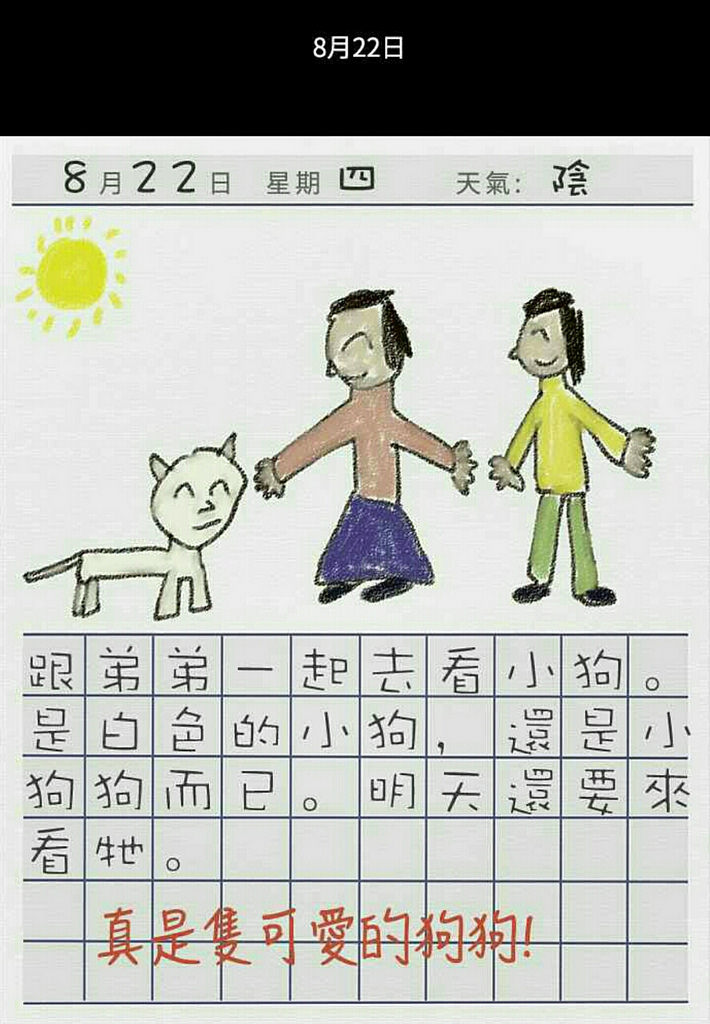 8月22日
8月22日 星期四 天氣：陰
跟弟弟一起去看小狗。
是白色的小狗，還是小
狗狗而已。明天還要來
看牠。
真是隻可愛的狗狗！